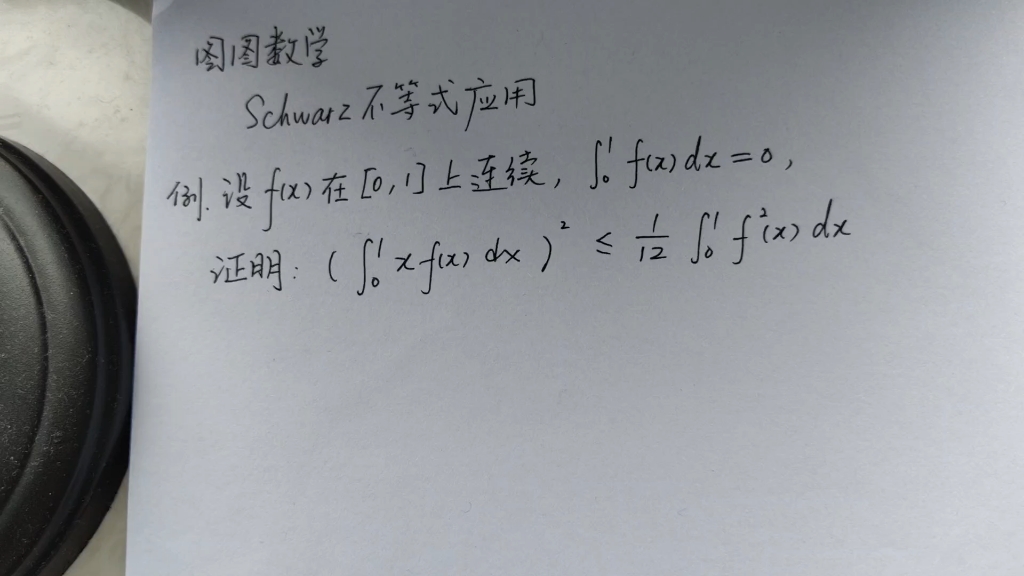 图图数学
Schwarz 不等式应用
例. 设 f(x) 在 [0,1] 上连续, ∫₀¹ f(x) dx = 0,
证明: ( ∫₀¹ x f(x) dx )² ≤ 1/12 ∫₀¹ f²(x) dx